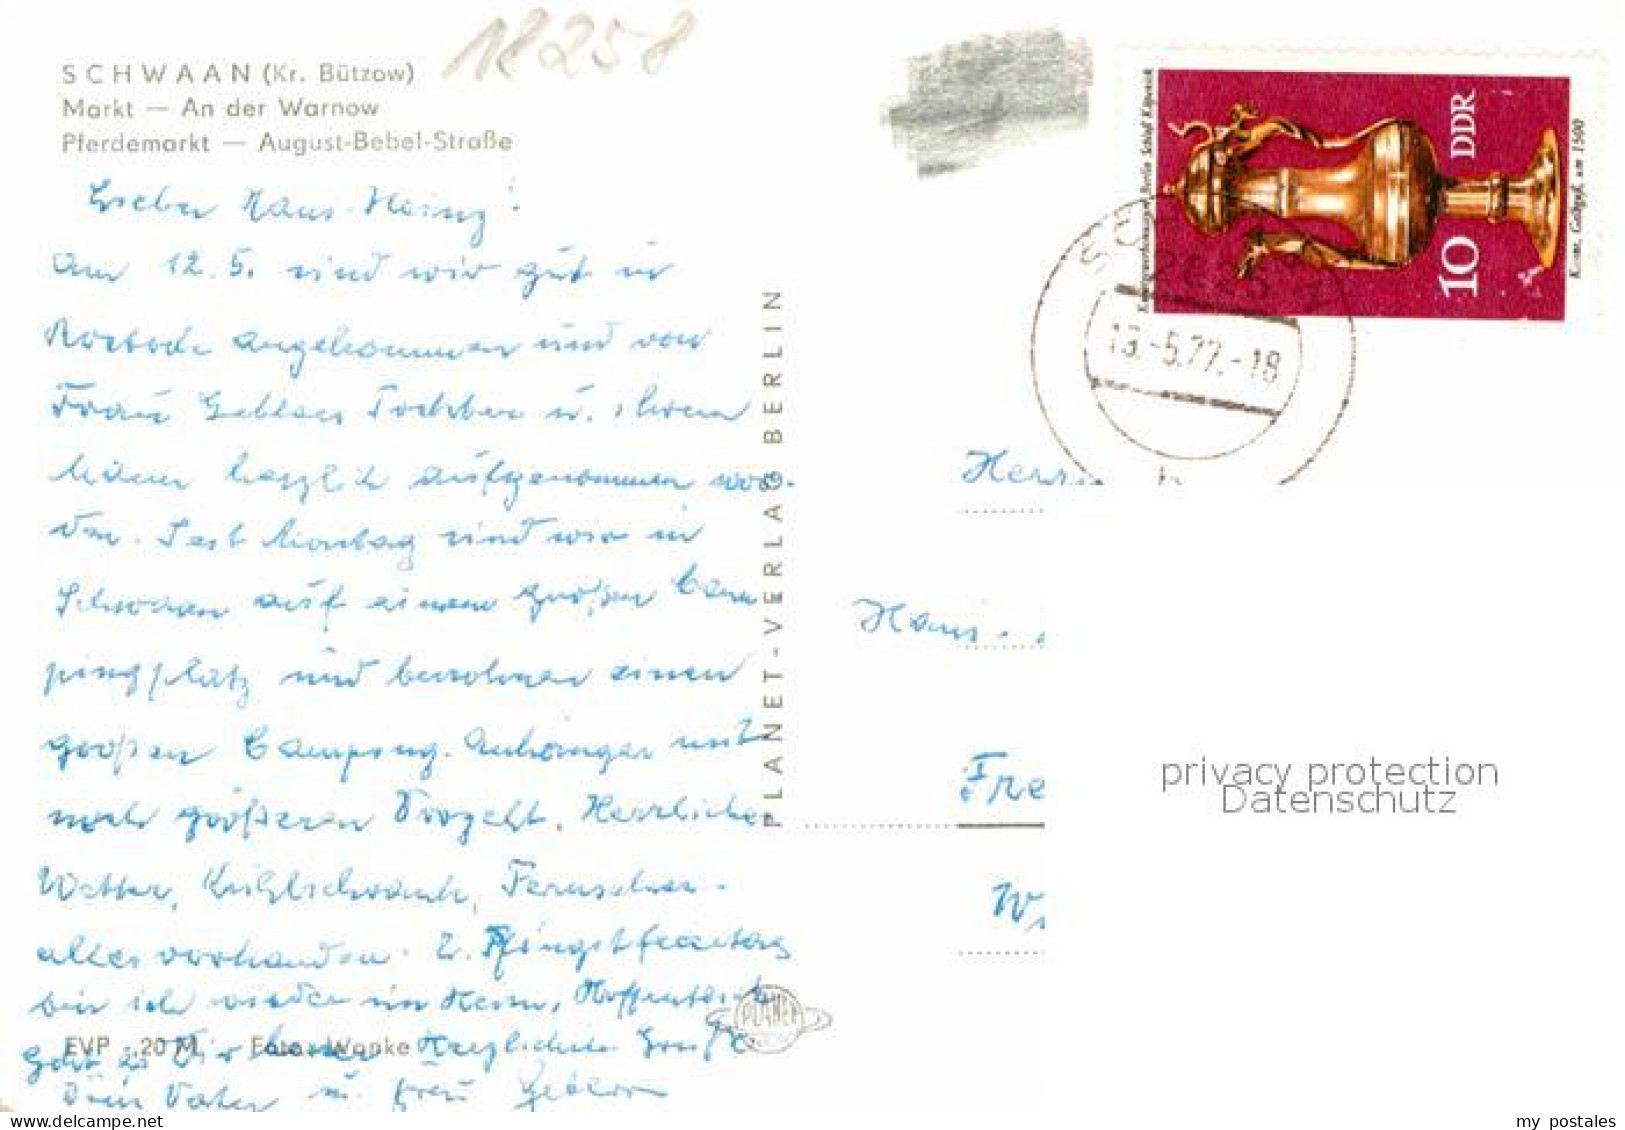 18258
SCHWAAN (Kr. Bützow)
Markt — An der Warnow
Pferdemarkt — August-Bebel-Straße
Lieber Hans-Heinz!
Am 12.5. sind wir gut in
Rostock angekommen und von
Frau Tochter u. ihrem
herzlich aufgenommen wor-
den. Seit Montag sind wir in
Schwaan auf einem großen Cam
pingplatz und bewohnen einen
großen Camping-Anhänger mit
noch größerem Vorzelt. Herrliches
Wetter, Kühlschrank, Fernsehen -
alles vorhanden. 2. Pfingstfeiertag
bin ich wieder im Heim. Hoffentlich
geht es Dir Herzliche Grüße
Dein Vater u. Frau
EVP -,20 M Foto: Wanke
PLANET-VERLAG BERLIN
PLANET
Kunstgewerbemuseum Berlin Schloß Köpenick
10 DDR
Kanne, Goldguß, um 1500
SC
13.-5.77.-18
b
Herrn
Hans-
Fre
W
privacy protection
Datenschutz
my postales